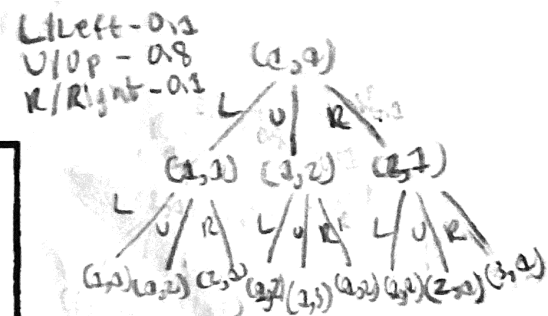 L/Left - 0.1
U/Up - 0.8
R/Right - 0.1
(1,1)
L U R
(1,1) (1,2) (2,1)
L U R L U R L U R
(1,1) (1,2) (2,1) (1,2) (1,3) (1,2) (2,1) (3,1)